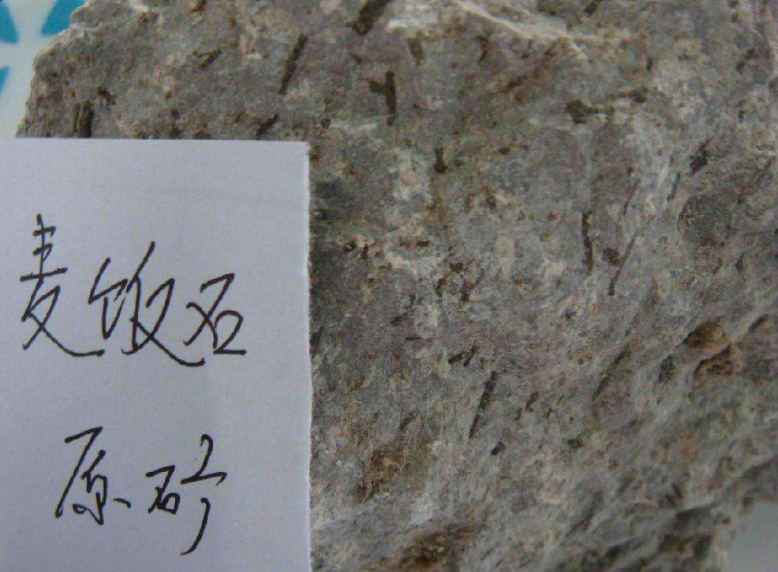 麦饭石
原矿